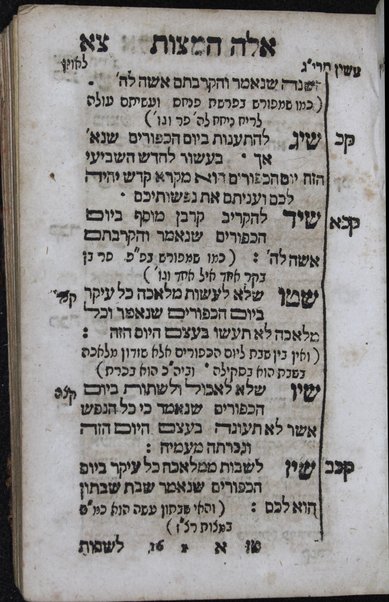 אלה המצות צא
עשין תרי״ג לאוין
השנה שנאמר והקרבתם אשה לה׳
(כמו שמפורש בפרשת פנחס ועשיתם עולה
לריח ניחח לה׳ פר וגו׳)
קכ שיג להתענות ביום הכפורים שנא׳
אך בעשור לחדש השביעי
הזה יום הכפורים הוא מקרא קדש יהיה
לכם ועניתם את נפשותיכם
קכא שיד להקריב קרבן מוסף ביום
הכפורים שנאמר והקרבתם
אשה לה׳ : (כמו שמפורש בפ״פ פר בן
בקר אחד איל אחד וגו׳)
שטו שלא לעשות מלאכה כל עיקר
ביום הכפורים שנאמר וכל
מלאכה לא תעשו בעצם היום הזה :
(ואין בין שבת ליום הכפורים אלא שזדון מלאכה
בשבת הוא בסקילה וביה״כ הוא בכרת)
שיו שלא לאכול ולשתות ביום
הכפורים שנאמר כי כל הנפש
אשר לא תעונה בעצם היום הזה
ונכרתה מעמיה :
קכב שיז לשבות ממלאכה כל עיקר ביום
הכפורים שנאמר שבת שבתון
הוא לכם : (והאי שבתון עשה הוא כמ״ש
במצות רצ״ז)
מן א 2 16 לשפות